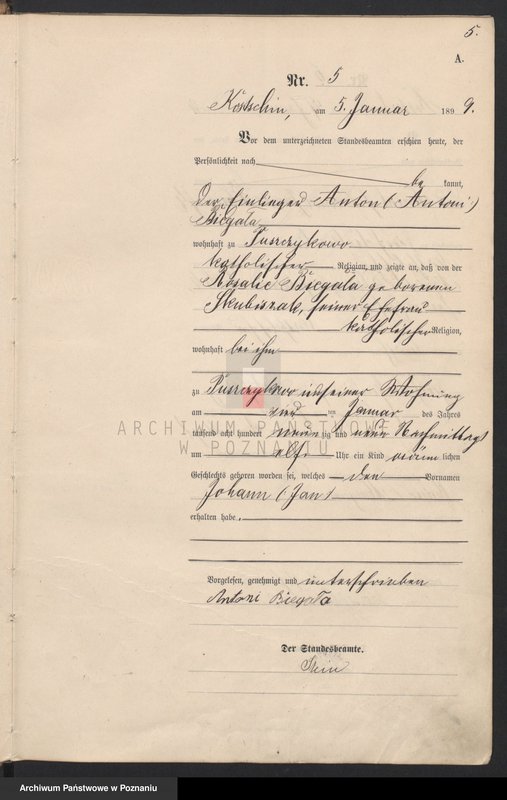 5.
A.
Nr. 5
Kostschin, am 5. Januar 1899.
Vor dem unterzeichneten Standesbeamten erschien heute, der
Persönlichkeit nach
be kannt,
der Einlieger Anton (Antoni)
Biegała
wohnhaft zu Puszczykowo
katholischer Religion, und zeigte an, daß von der
Rosalie Biegala geborenen
Skubiszak, seiner Ehefrau
katholischer Religion,
wohnhaft bei ihm
zu Puszczykowo in seiner Wohnung
am Januar des Jahres
tausend acht hundert neunzig und neun Nachmittags
um elf Uhr ein Kind männlichen
Geschlechts geboren worden sei, welches den Vornamen
Johann (Jan)
erhalten habe.
ARCHIWUM PAŃSTWOWE
W POZNANIU
Vorgelesen, genehmigt und unterschrieben
Antoni Biegała
Der Standesbeamte.
Archiwum Państwowe w Poznaniu